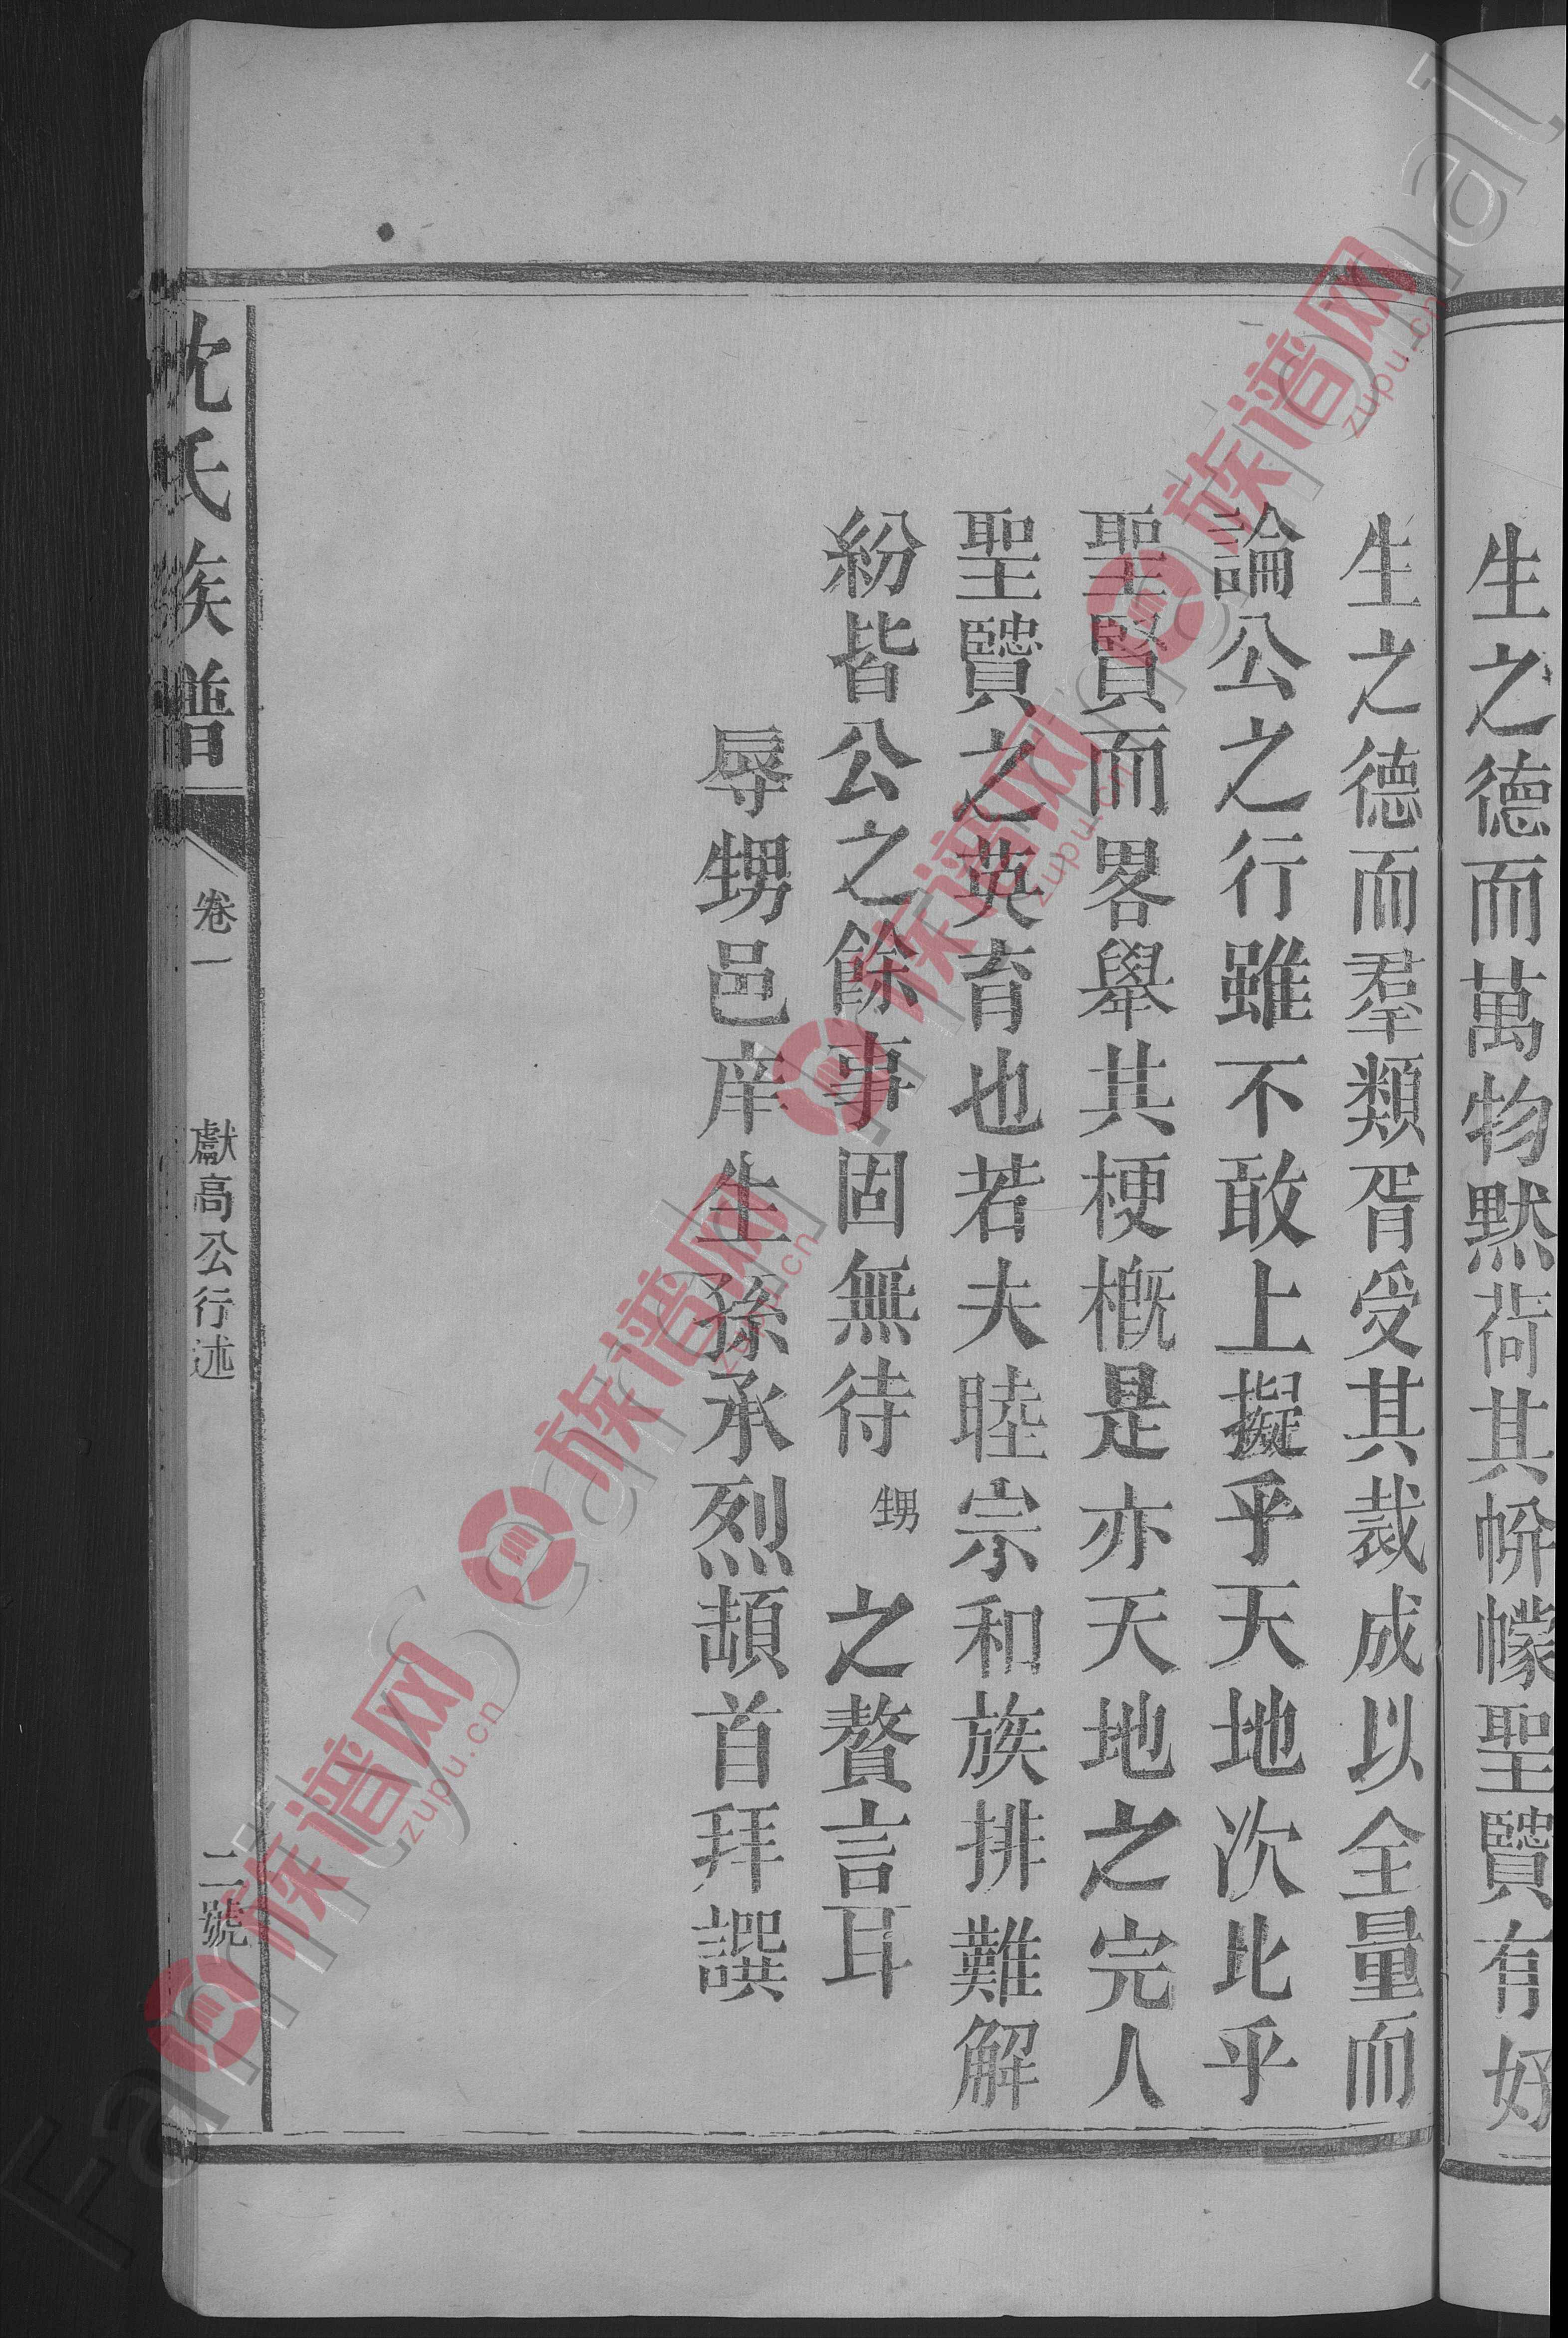 生之德而萬物黙荷其帡幪聖賢有好
生之德而羣類胥受其裁成以全量而
論公之行雖不敢上擬乎天地次比乎
聖賢而畧舉其梗概是亦天地之完人
聖賢之英育也若夫睦宗和族排難解
紛皆公之餘事固無待甥之贅言耳
辱甥邑庠生孫承烈頡首拜譔
沈氏族譜
卷一
獻高公行述
二號
族谱网
zupu.cn
族谱网
zupu.cn
族谱网
zupu.cn
族谱网
zupu.cn